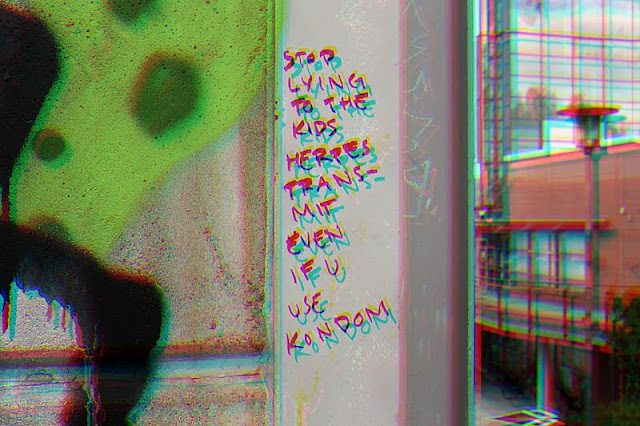 STOP
LYING
TO THE
KIDS
HERPES
TRANS-
MIT
EVEN
IF U
USE
KONDOM